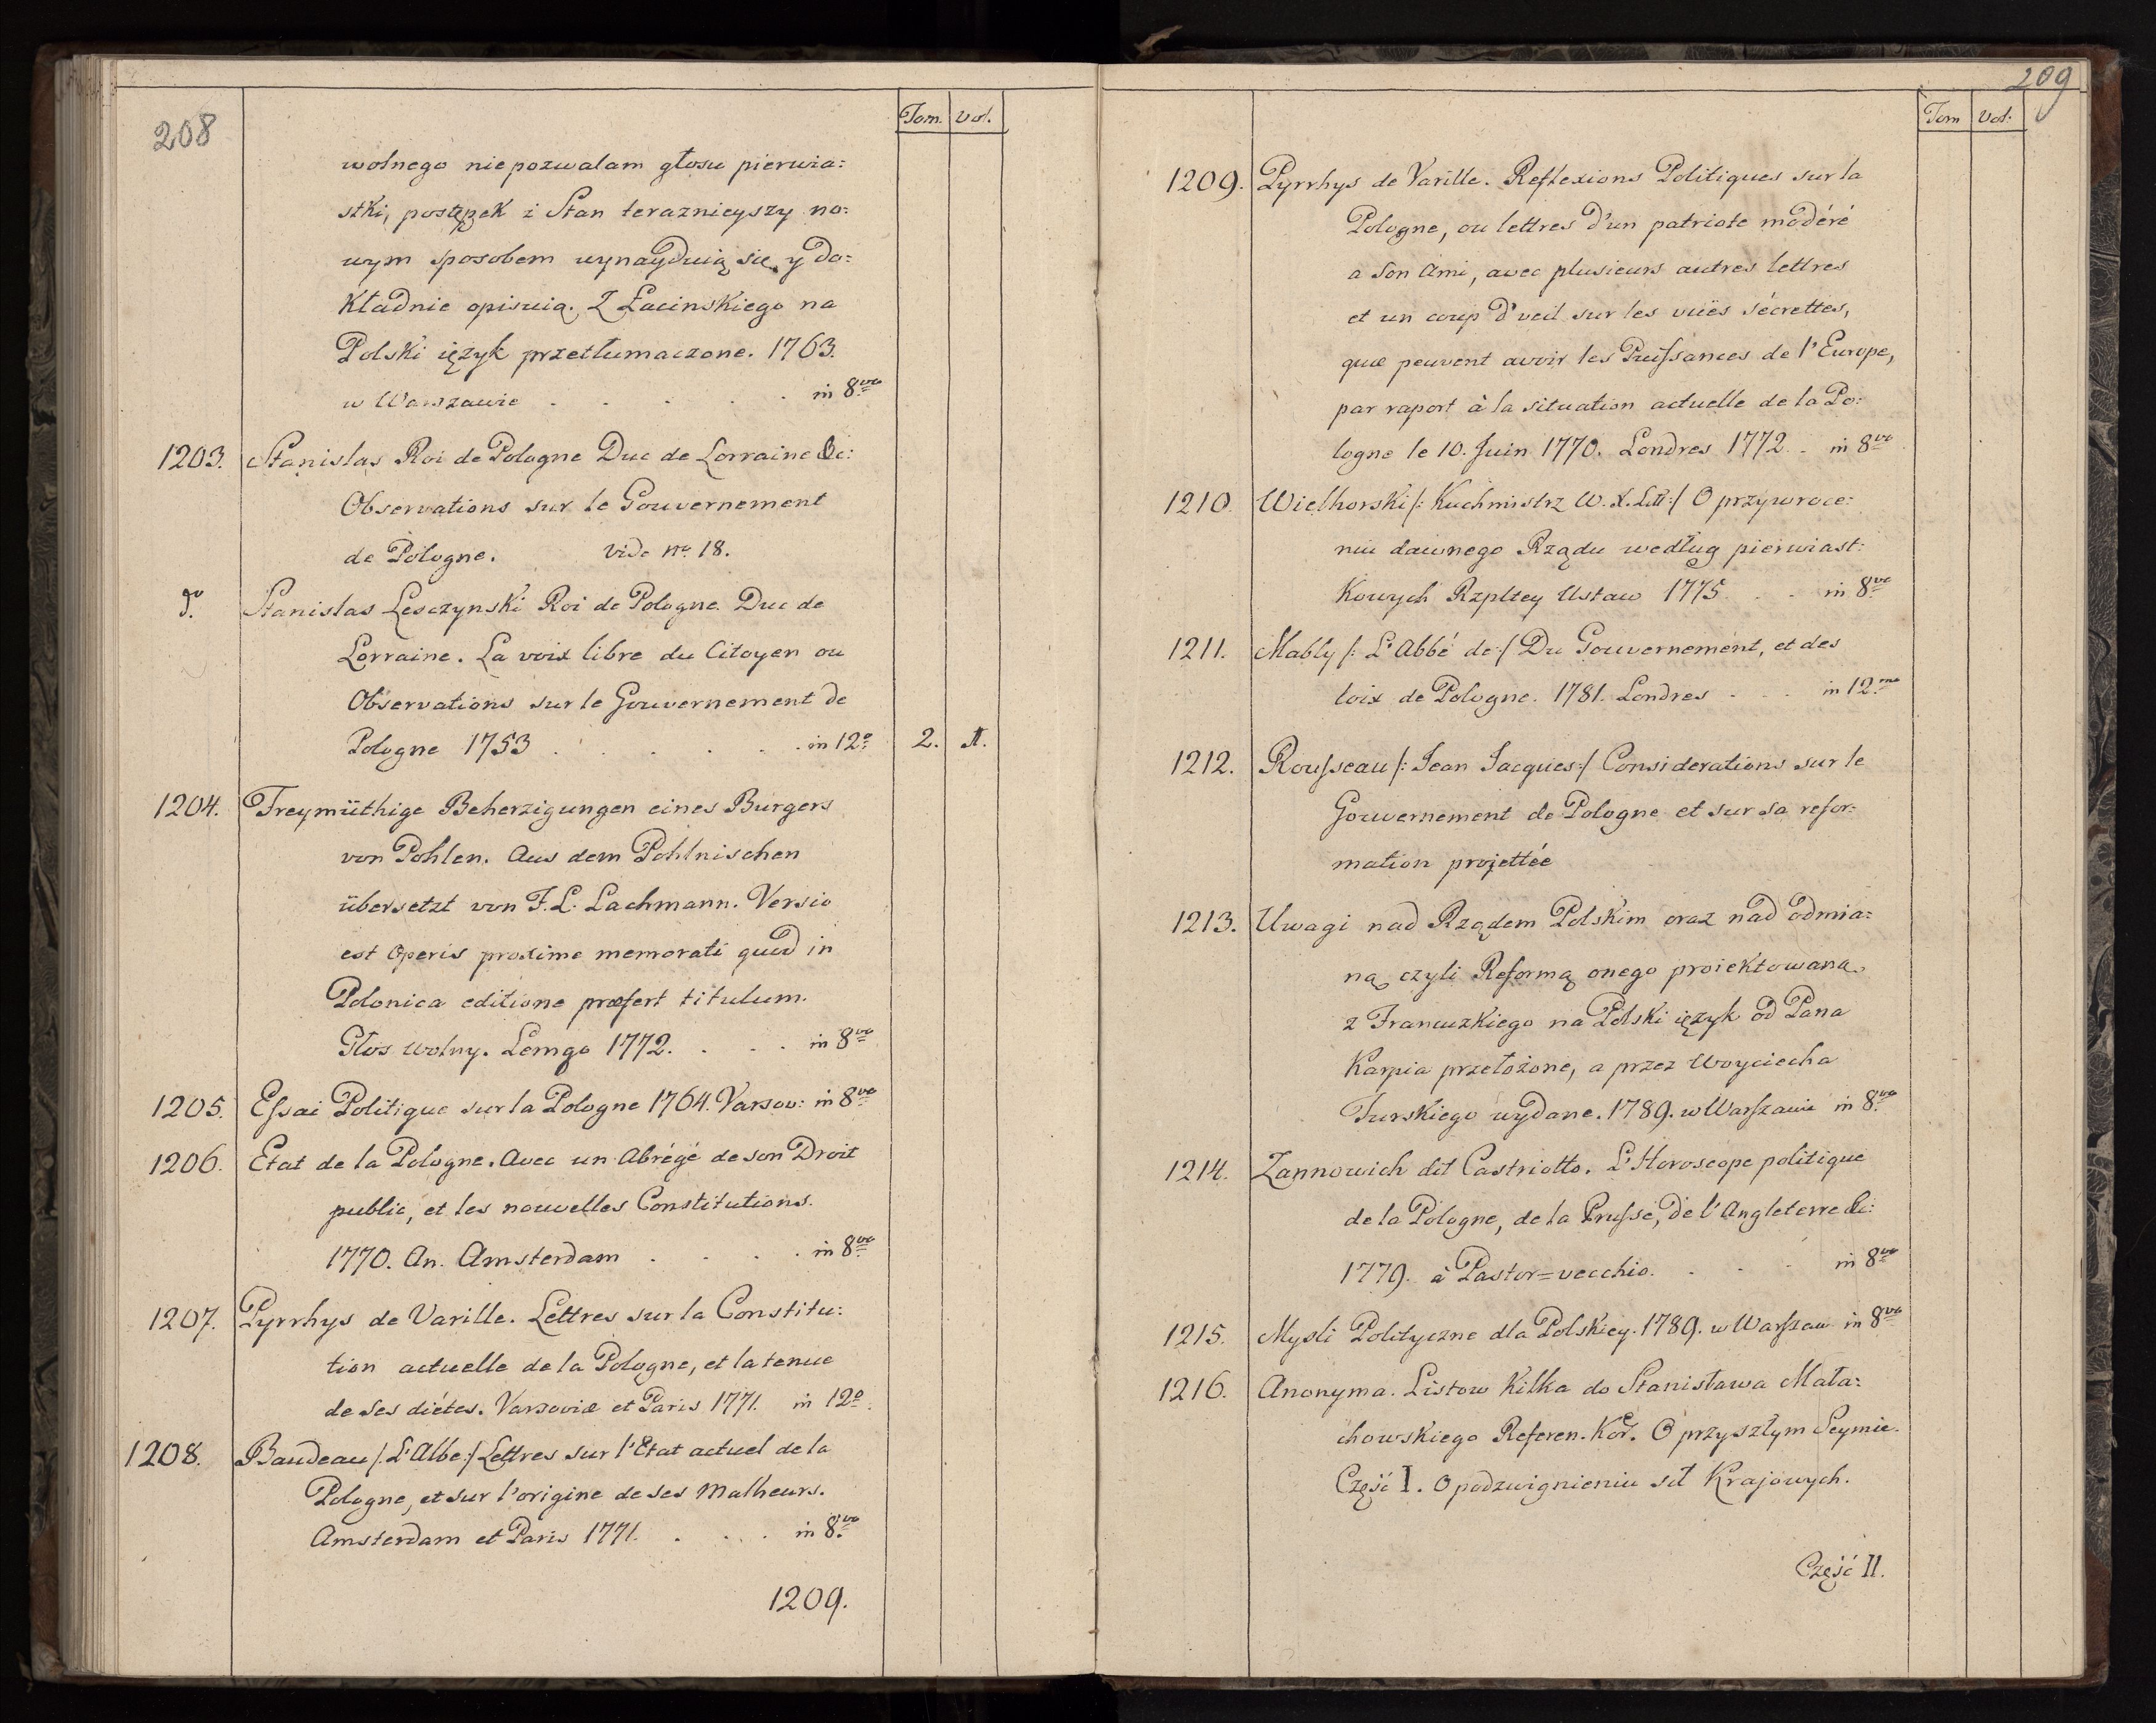 208
Tom. Vol.
wolnego niepozwalam głosu pierwia:
stki, postępek i Stan teraznieyszy no:
wym sposobem wynayduią się y do:
kładnie opisuią. Z Łacinskiego na
Polski ięzyk przetłumaczone. 1763.
w Warszawie . . . . . in 8vo
1203. Stanislas Roi de Pologne Duc de Lorraine &c:
Observations sur le Gouvernement
de Pologne. vide no 18.
do. Stanislas Lesczynski Roi de Pologne. Duc de
Lorraine. La voix libre du Citoyen ou
Observations sur le Gouvernement de
Pologne 1753 . . . . . in 12o 2. 1.
1204. Freymüthige Beherzigungen eines Burgers
von Pohlen. Aus dem Pohlnischen
übersetzt von F. L. Lachmann. Versio
est operis proxime memorati quod in
Polonica editione præfert titulum.
Głos wolny. Lemgo 1772. . . . in 8vo
1205. Essai Politique sur la Pologne 1764. Varsov: in 8vo
1206. Etat de la Pologne. Avec un Abrégé de son Droit
public, et les nouvelles Constitutions.
1770. An. Amsterdam . . . . in 8vo
1207. Pyrrhys de Varille. Lettres sur la Constitu:
tion actuelle de la Pologne, et la tenue
de ses diétes. Varsoviæ et Paris 1771. in 12o.
1208. Baudeau /: L'Albe :/ Lettres sur l'Etat actuel de la
Pologne, et sur l'origine de ses Malheurs.
Amsterdam et Paris 1771. . . . in 8vo
1209.
209
Tom Vol.
1209. Pyrrhys de Varille. Reflexions Politiques sur la
Pologne, ou lettres d'un patriote modéré
a son Ami, avec plusieurs autres lettres
et un coup d'veil sur les vuës sécrettes,
que peuvent avoir les Puissances de l'Europe,
par raport à la situation actuelle de la Po:
logne le 10. Juin 1770. Londres 1772. . in 8vo
1210. Wielhorski /: Kuchmistrz W. X. Litt :/ O przywroce:
niu dawnego Rządu według pierwiast:
kowych Rzpltey Ustaw 1775. . . in 8vo
1211. Mably /: L'Abbé de :/ Du Gouvernement, et des
loix de Pologne. 1781. Londres . . . in 12mo
1212. Rousseau /: Jean Jacques :/ Considerations sur le
Gouvernement de Pologne et sur sa refor:
mation projettée
1213. Uwagi nad Rządem Polskim oraz nad odmia:
ną czyli Reformą onego proiektowaną.
z Francuzkiego na Polski ięzyk od Pana
Karpia przełożone, a przez Woyciecha
Turskiego wydane. 1789. w Warszawie in 8vo
1214. Zannowich dit Castriotto. L'Horoscope politique
de la Pologne, de la Prusse, de l'Angleterre &c:
1779. à Pastor=vecchio. . . . in 8vo
1215. Mysli Polityczne dla Polskiey. 1789. w Warszaw in 8vo
1216. Anonyma. Listow kilka do Stanisława Mała:
chowskiego Referen. Kor. O przyszłym Seymie.
Część I. O podzwignieniu sił Krajowych.
Część II.